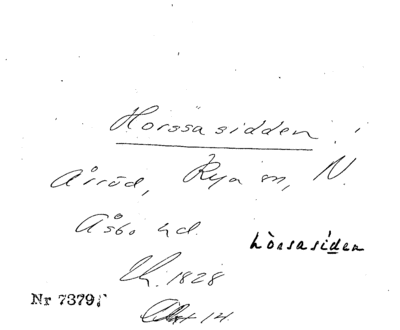 Horssasidden.
Årröd, Rya sn, N.
Åsbo hd.
hörsasiden
Uh. 1828
14
Nr 7379